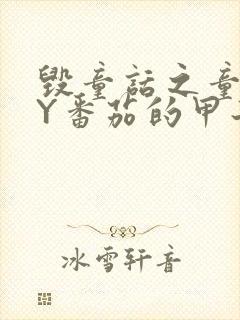 毁童话之童
Y番茄的甲
冰雪轩音